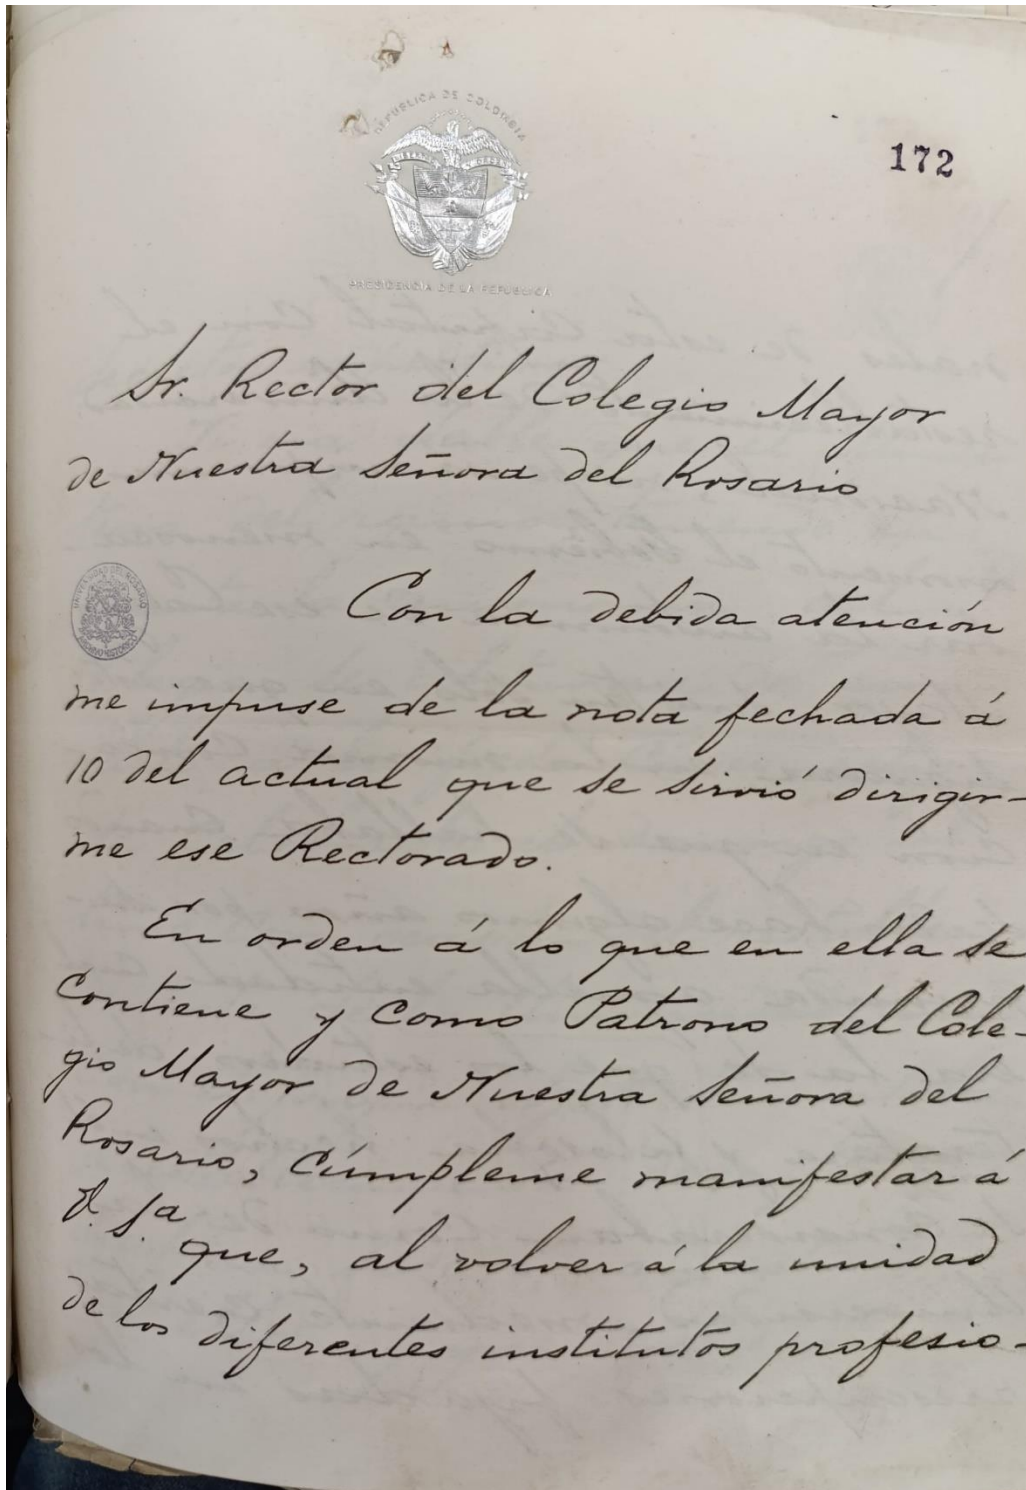 REPUBLICA DE COLOMBIA
LIBERTAD Y ORDEN
PRESIDENCIA DE LA REPUBLICA
172
Sr. Rector del Colegio Mayor
de Nuestra Señora del Rosario
UNIVERSIDAD DEL ROSARIO
ARCHIVO HISTORICO
Con la debida atención
me impuse de la nota fechada á
10 del actual que se sirvió dirigir-
me ese Rectorado.
En orden á lo que en ella se
contiene y como Patrono del Cole-
gio Mayor de Nuestra Señora del
Rosario, cúmpleme manifestar á
V. Sª que, al volver á la unidad
de los diferentes institutos profesio-